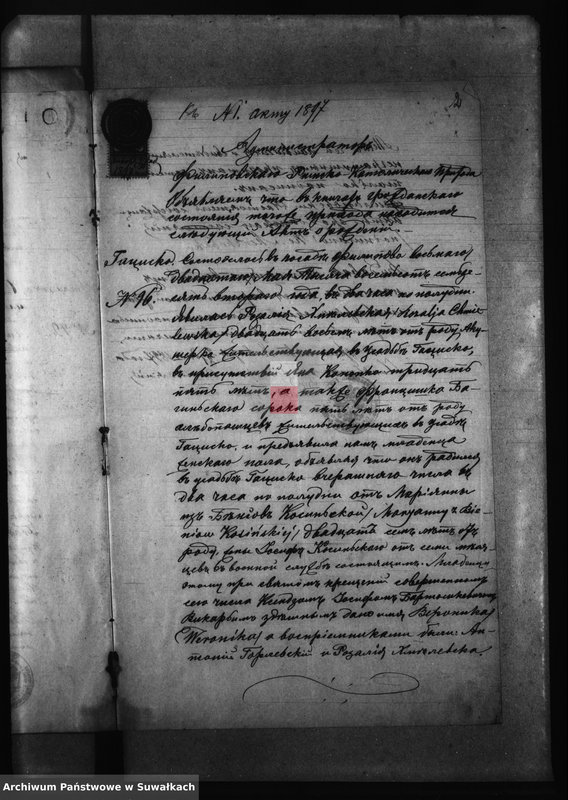 Къ №1 акту 1897
2
Администраторъ
Филиповскаго Римско-Католическаго Прихода
объявляетъ что въ книгахъ гражданскаго
состоянія тогоже прихода находится
слѣдующій Актъ о рожденіи
Гациско. Состоялось въ посадѣ Филипово восьмаго
двадцатаго Мая Мѣсяца восемьсотъ семьде-
№ 96. сятъ втораго года, въ два часа по полудни
явилась Розалія Хмѣлевская /Rozalja Chmie
lewska/ двадцать восемь лѣтъ отъ роду, Аку
шерка жительствующая въ усадьбѣ Гациско,
въ присутствіи Яна Конопко тридцать
пять лѣтъ, а также Францишка Ва-
гинскаго сорокъ пять лѣтъ отъ роду
жительствующихъ въ усадьбѣ
Гациско, и предъявила намъ младенца
женскаго пола, объявляя что онъ родился
въ усадьбѣ Гациско вчерашняго числа въ
два часа по полудни отъ Маріянны
изъ Косинской /Maryanny z
Kosińskiej/ двадцать семь лѣтъ отъ
роду, жены Іосифа Косинскаго отъ семи мѣся-
цевъ въ военной службѣ состоящимъ. Младенцу
этому при святомъ крещеніи совершенномъ
сего числа Ксендзомъ Іосифомъ Бартошкевичемъ
Викарнымъ здѣшнымъ дано имя Вероника
(Weronika) а воспріемниками были: Ан-
тоній Горлевскій и Розалія Хмѣлевска.
Archiwum Państwowe w Suwałkach